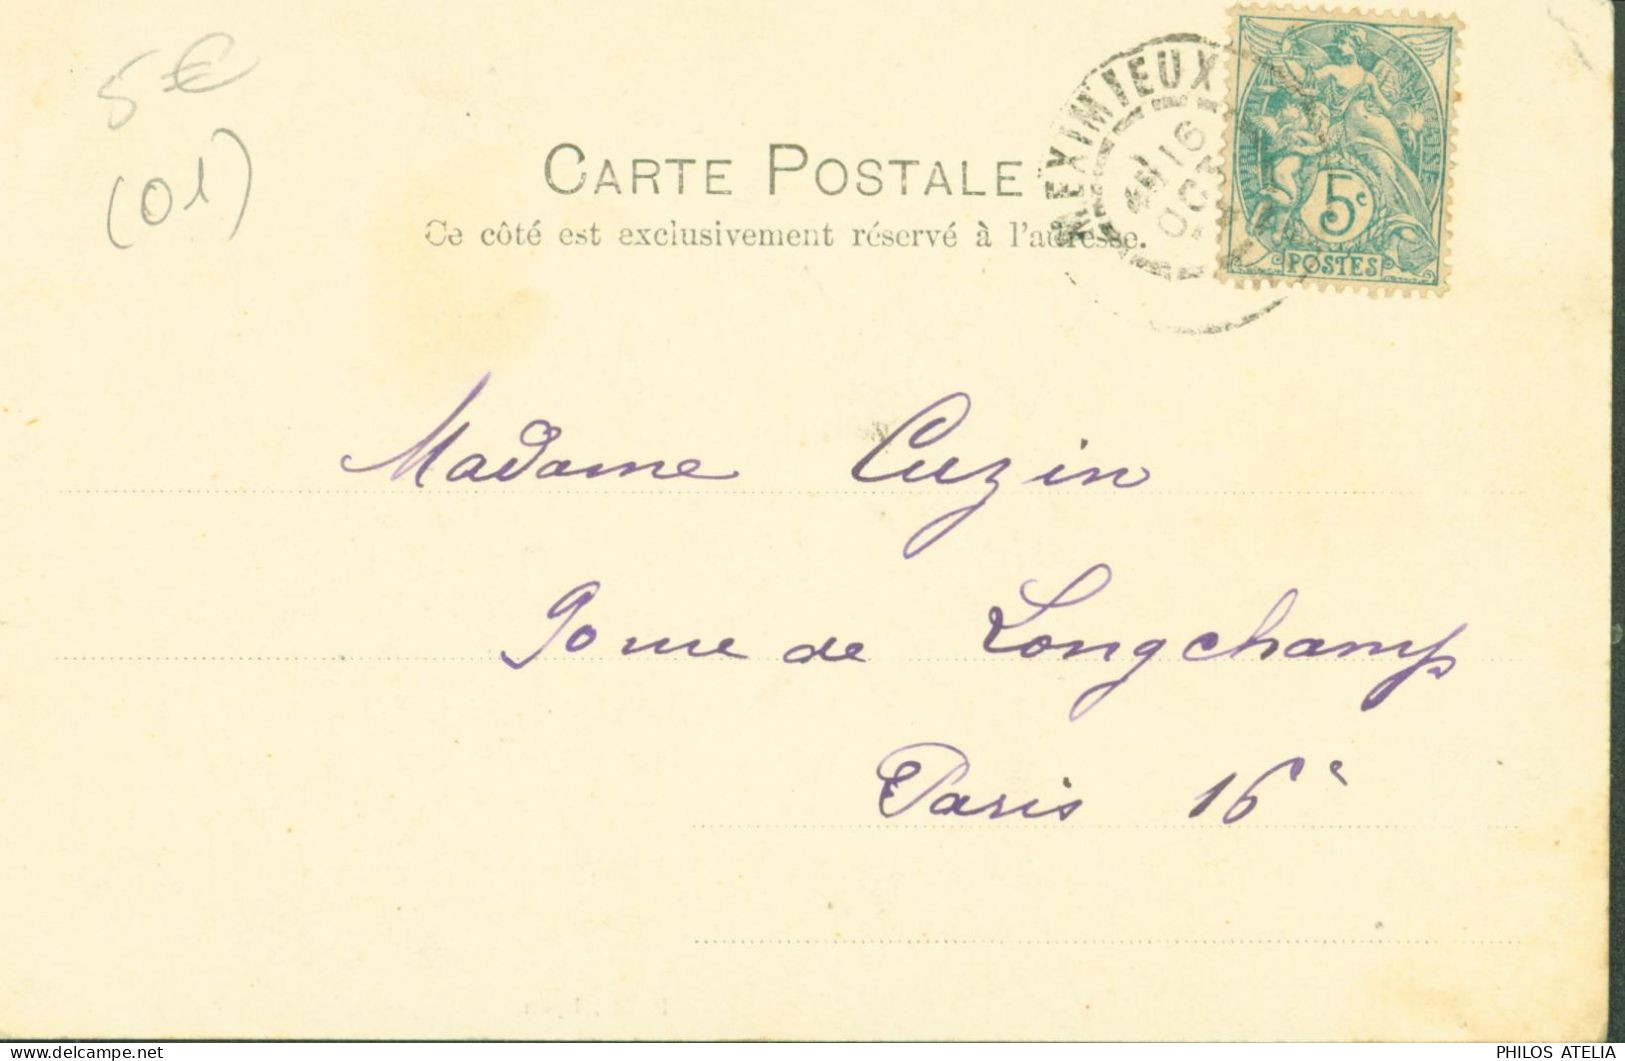 5€
(01)
CARTE POSTALE
Ce côté est exclusivement réservé à l'adresse.
MEXIMIEUX
16
OCT
5c
POSTES
Madame Cuzin
90 rue de Longchamp
Paris 16e
PHILOS ATELIA